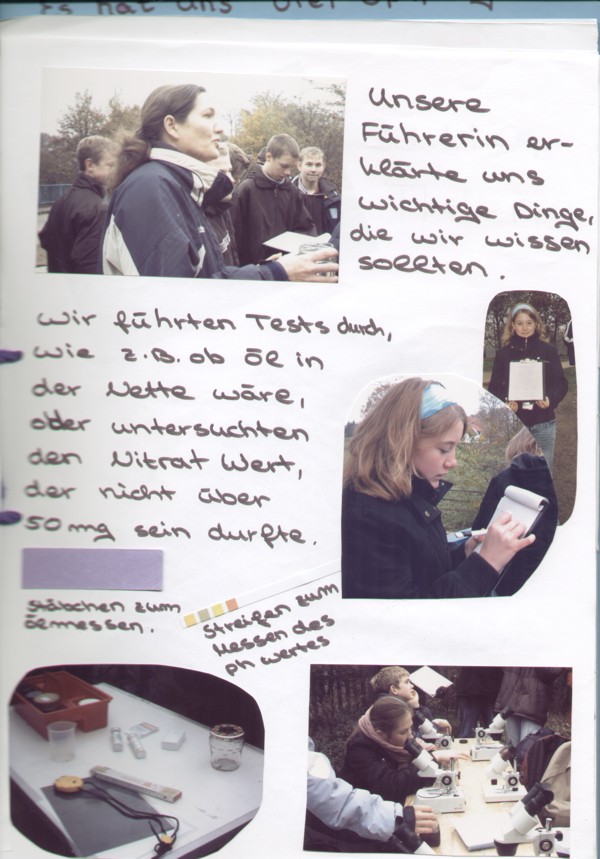 Es hat uns viel
Unsere
Führerin er-
klärte uns
wichtige Dinge,
die wir wissen
sollten.
Wir führten Tests durch,
wie z.B. ob Öl in
der Nette wäre,
oder untersuchten
den Nitrat Wert,
der nicht über
50 mg sein durfte.
Stäbchen zum
Ölmessen.
Streifen zum
Messen des
ph wertes